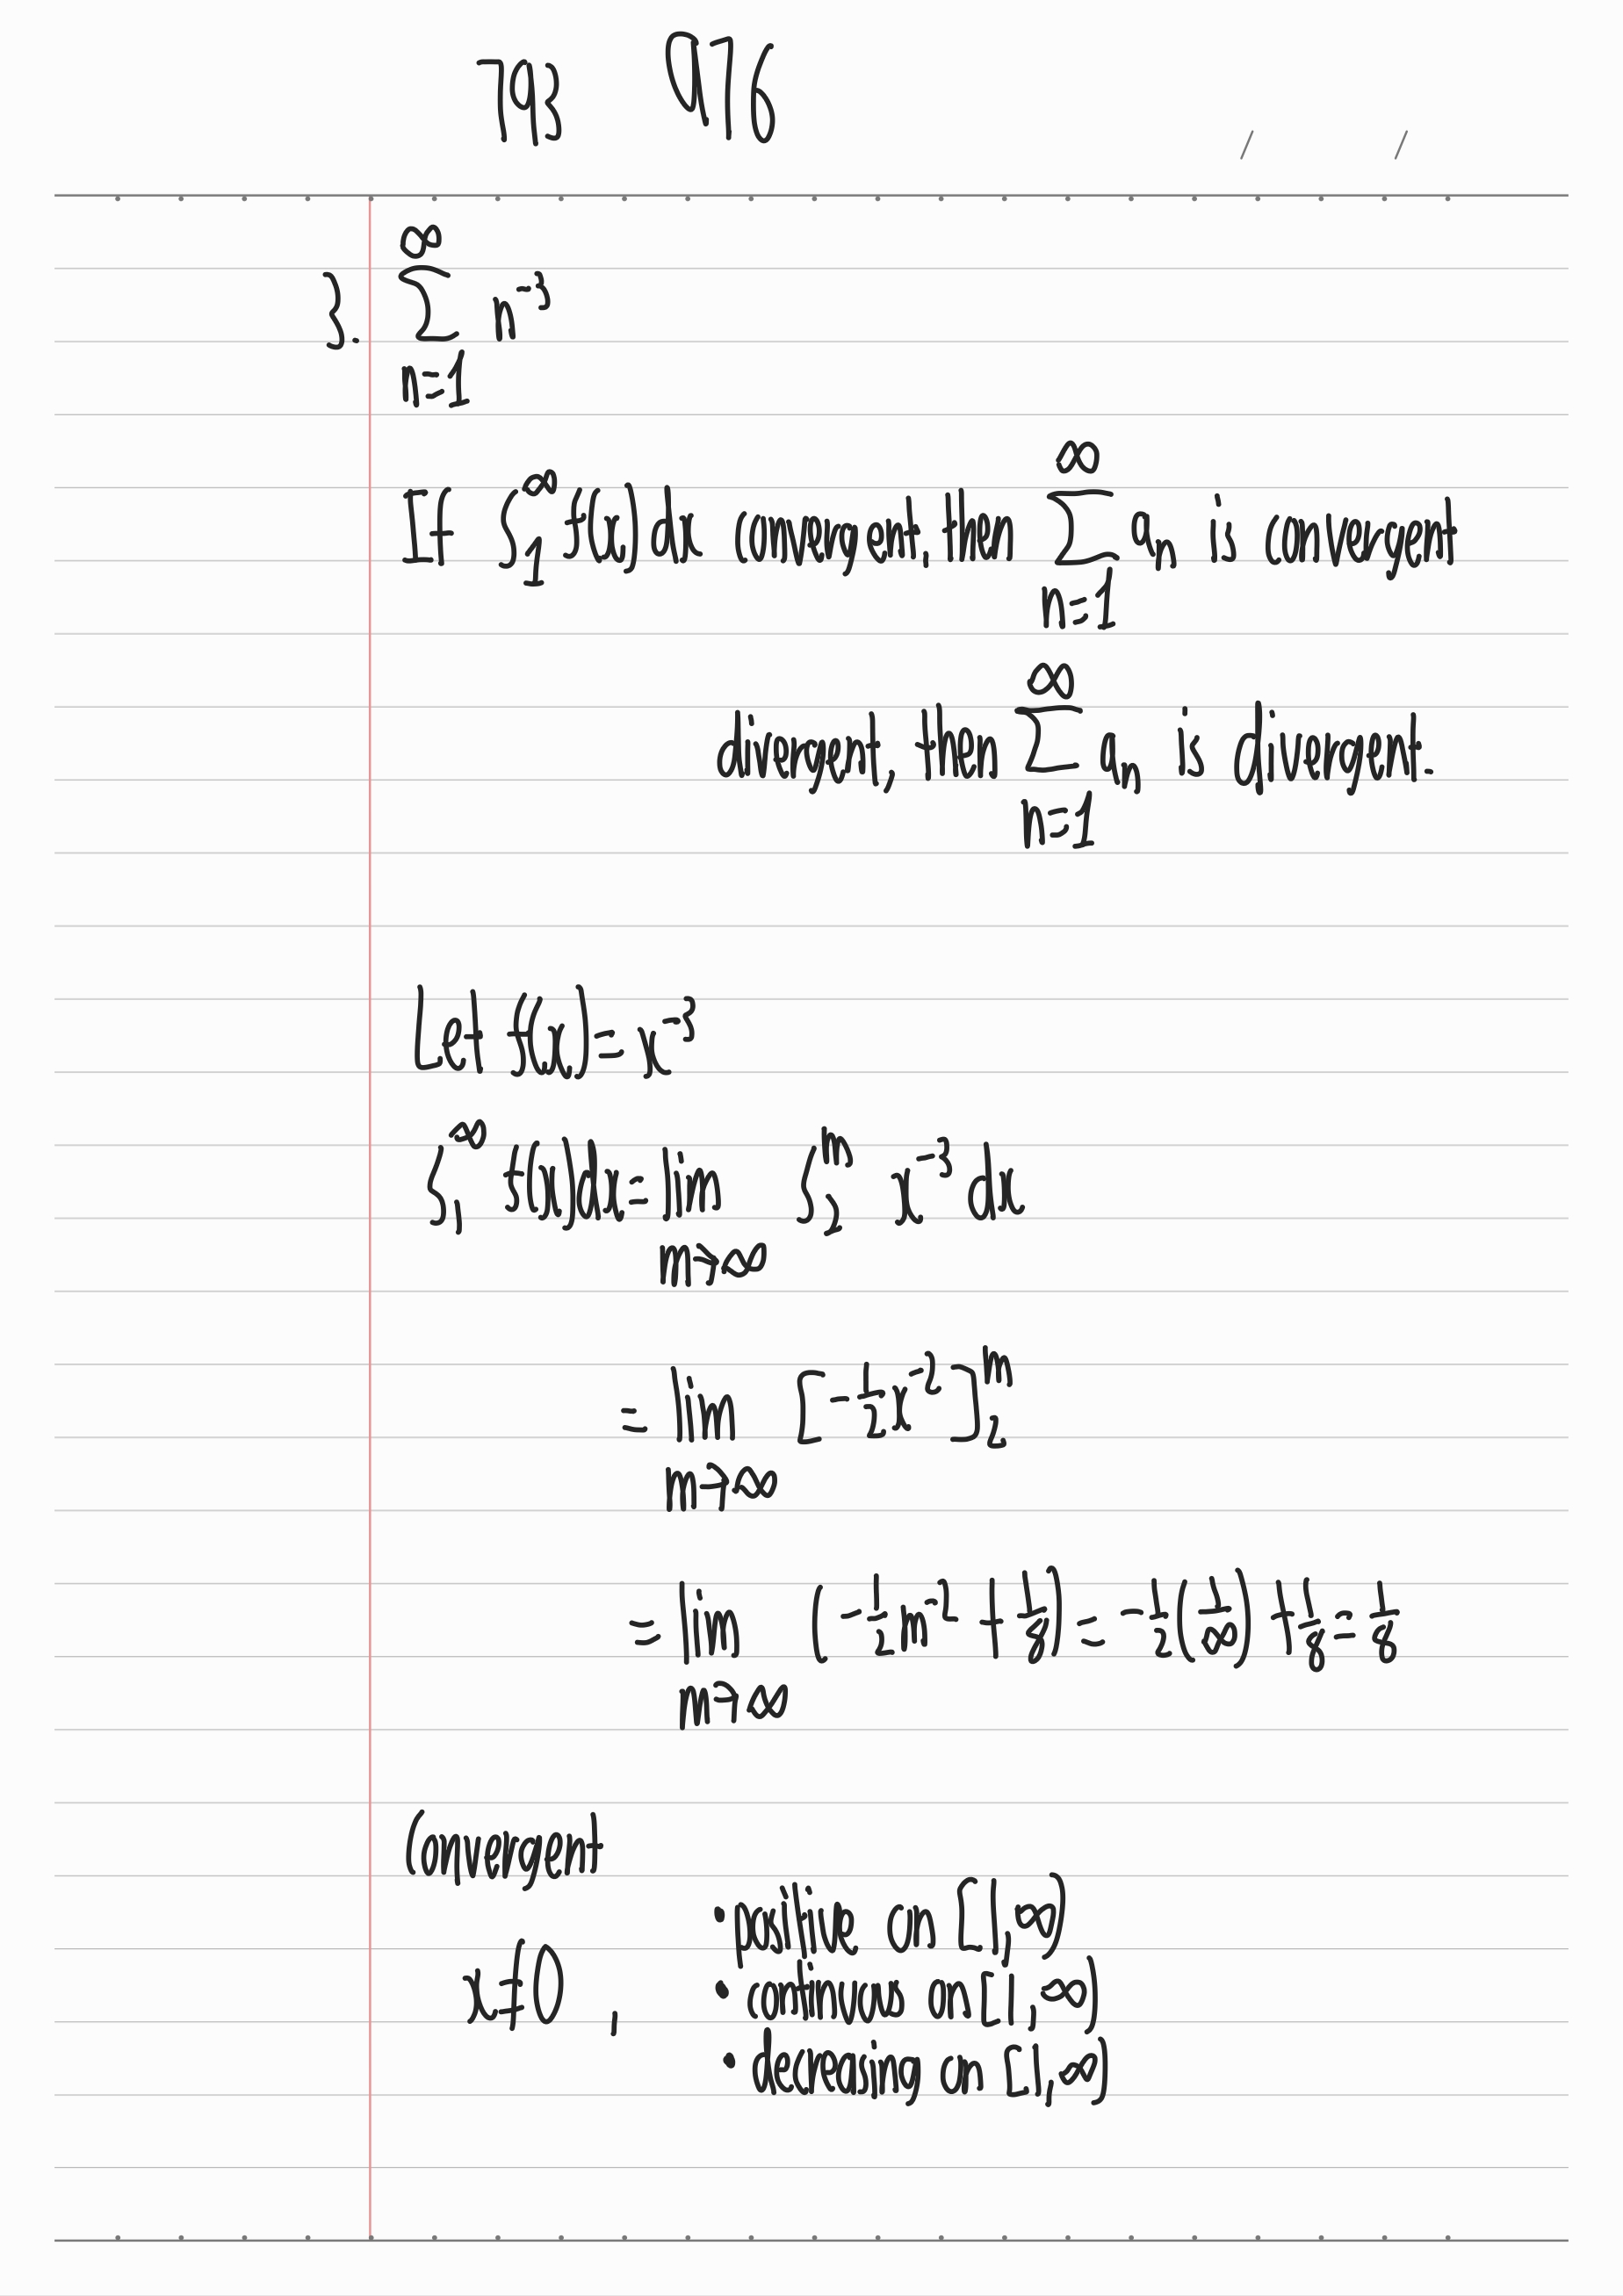 793 976
/ /
3. ∞∑n=1 n⁻³
If ∫₁^∞ f(x)dx convergent, then ∞∑n=1 aₙ is convergent
divergent, then ∞∑n=1 aₙ is divergent.
Let f(x) = x⁻³
∫₁^∞ f(x)dx = lim m→∞ ∫₂^m x⁻³ dx
= lim m→∞ [-1/2 x⁻²]₂^m
= lim m→∞ (-1/2 m⁻² + 1/8) = -1/2 (1/∞) + 1/8 = 1/8
Convergent
• positive on [1,∞)
x≠0, • continuous on [1,∞)
• decreasing on [1,∞)